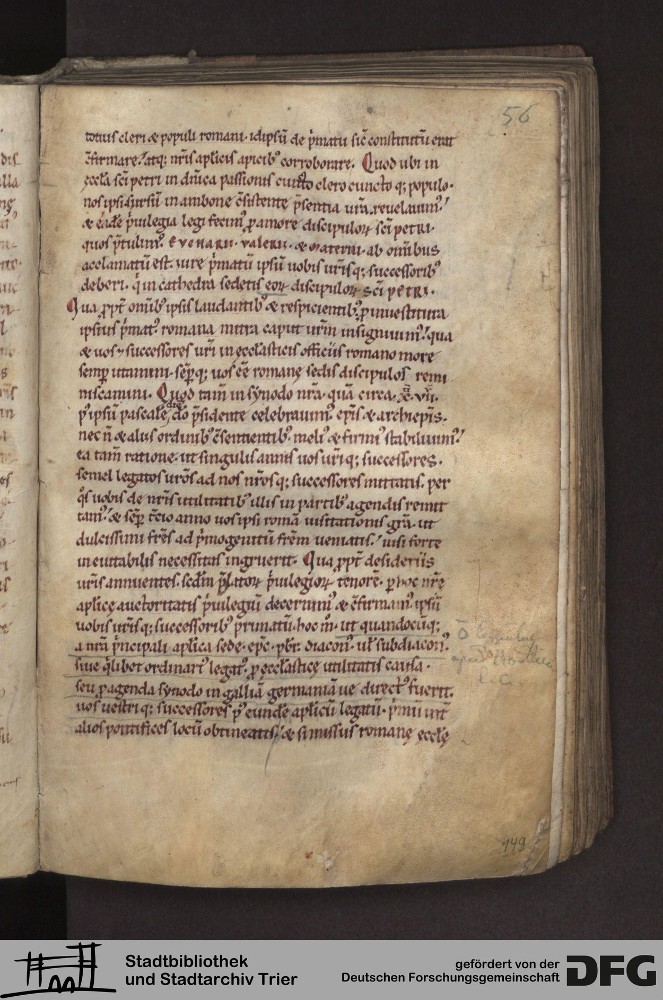 56
totius cleri & populi romani. idipsū de p̄matu sic̄ constitutū erat
c̄firmare. atq; nr̄is aplicis apicib; corroborare. Quod ubi in
ęccła sci petri in dn̄ica passionis cuncto clero cuncto q; populo.
nos ipsi sursū in ambone c̄sistente p̄sentia ur̄a. reuelauim;
& eadē p̄uilegia legi fecim; p amore discipuloꝝ sci petri.
quos p̄tulim; EVCHARII. VALERII. & Materni. ab om̄ib;
acclamatū est. iure p̄matū ipsū uobis ur̄isq; successorib;
deberi. q̄ in cathedra sedetis eoꝝ discipuloꝝ sci PETRI.
Qua ꝓpt̄ om̄ib; ipsis laudantib; & respicientib; ꝓ inuestitura
ipsius p̄mat; romana mitra caput ur̄m insigniuim; qua
& uos & successores ur̄i in ęcclasticis officiis romano more
semp utamini. semp q; uos eē romanę sedis discipulos remi
niscamini. Quod tam̄ in synodo nr̄a. quā circa
p; ipsū pascale dō p̄sidente celebrauim; ep̄is & archiep̄is.
nec n̄ & aliis ordinib; c̄sentientib; meli; & firmi; stabiliuim;
ea tam̄ ratione. ut singulis annis uos ur̄iq; successores.
semel legatos ur̄os ad nos nr̄osq; successores mittatis. per
q̄s uobis de nr̄is utilitatib; illis in partib; agendis remit
tam; & semp t̄cio anno uos ipsi romā uisitationis grā. ut
dulcissimi frēs ad p̄mogenitū frēm ueniatis. nisi forte
ineuitabilis necessitas ingruerit. Qua ꝓpt̄ desideriis
ur̄is annuentes. scdm p̄latoꝝ p̄uilegioꝝ tenorē. p hoc nr̄ę
aplicę auctoritatis p̄uilegiū decernim; & c̄firmam; ipsū
uobis ur̄isq; successorib; p̄rimatū. hoc m̄. ut quandocūq;
a nr̄a p̄ncipali aplica sede. ep̄c. pb̄r. diacon; uł subdiacon;
siue q̄libet ordinari; legat; ꝓ ęcclasticę utilitatis causa.
seu ꝓ agenda synodo in galliā germaniā ue direct; fuerit.
uos uestriq; successores p; eundē aplicū legatū. p̄mū int̄
alios pontifices locū obtineatis. & si missus romanę ęcclę
149
Stadtbibliothek
und Stadtarchiv Trier
gefördert von der
Deutschen Forschungsgemeinschaft
DFG